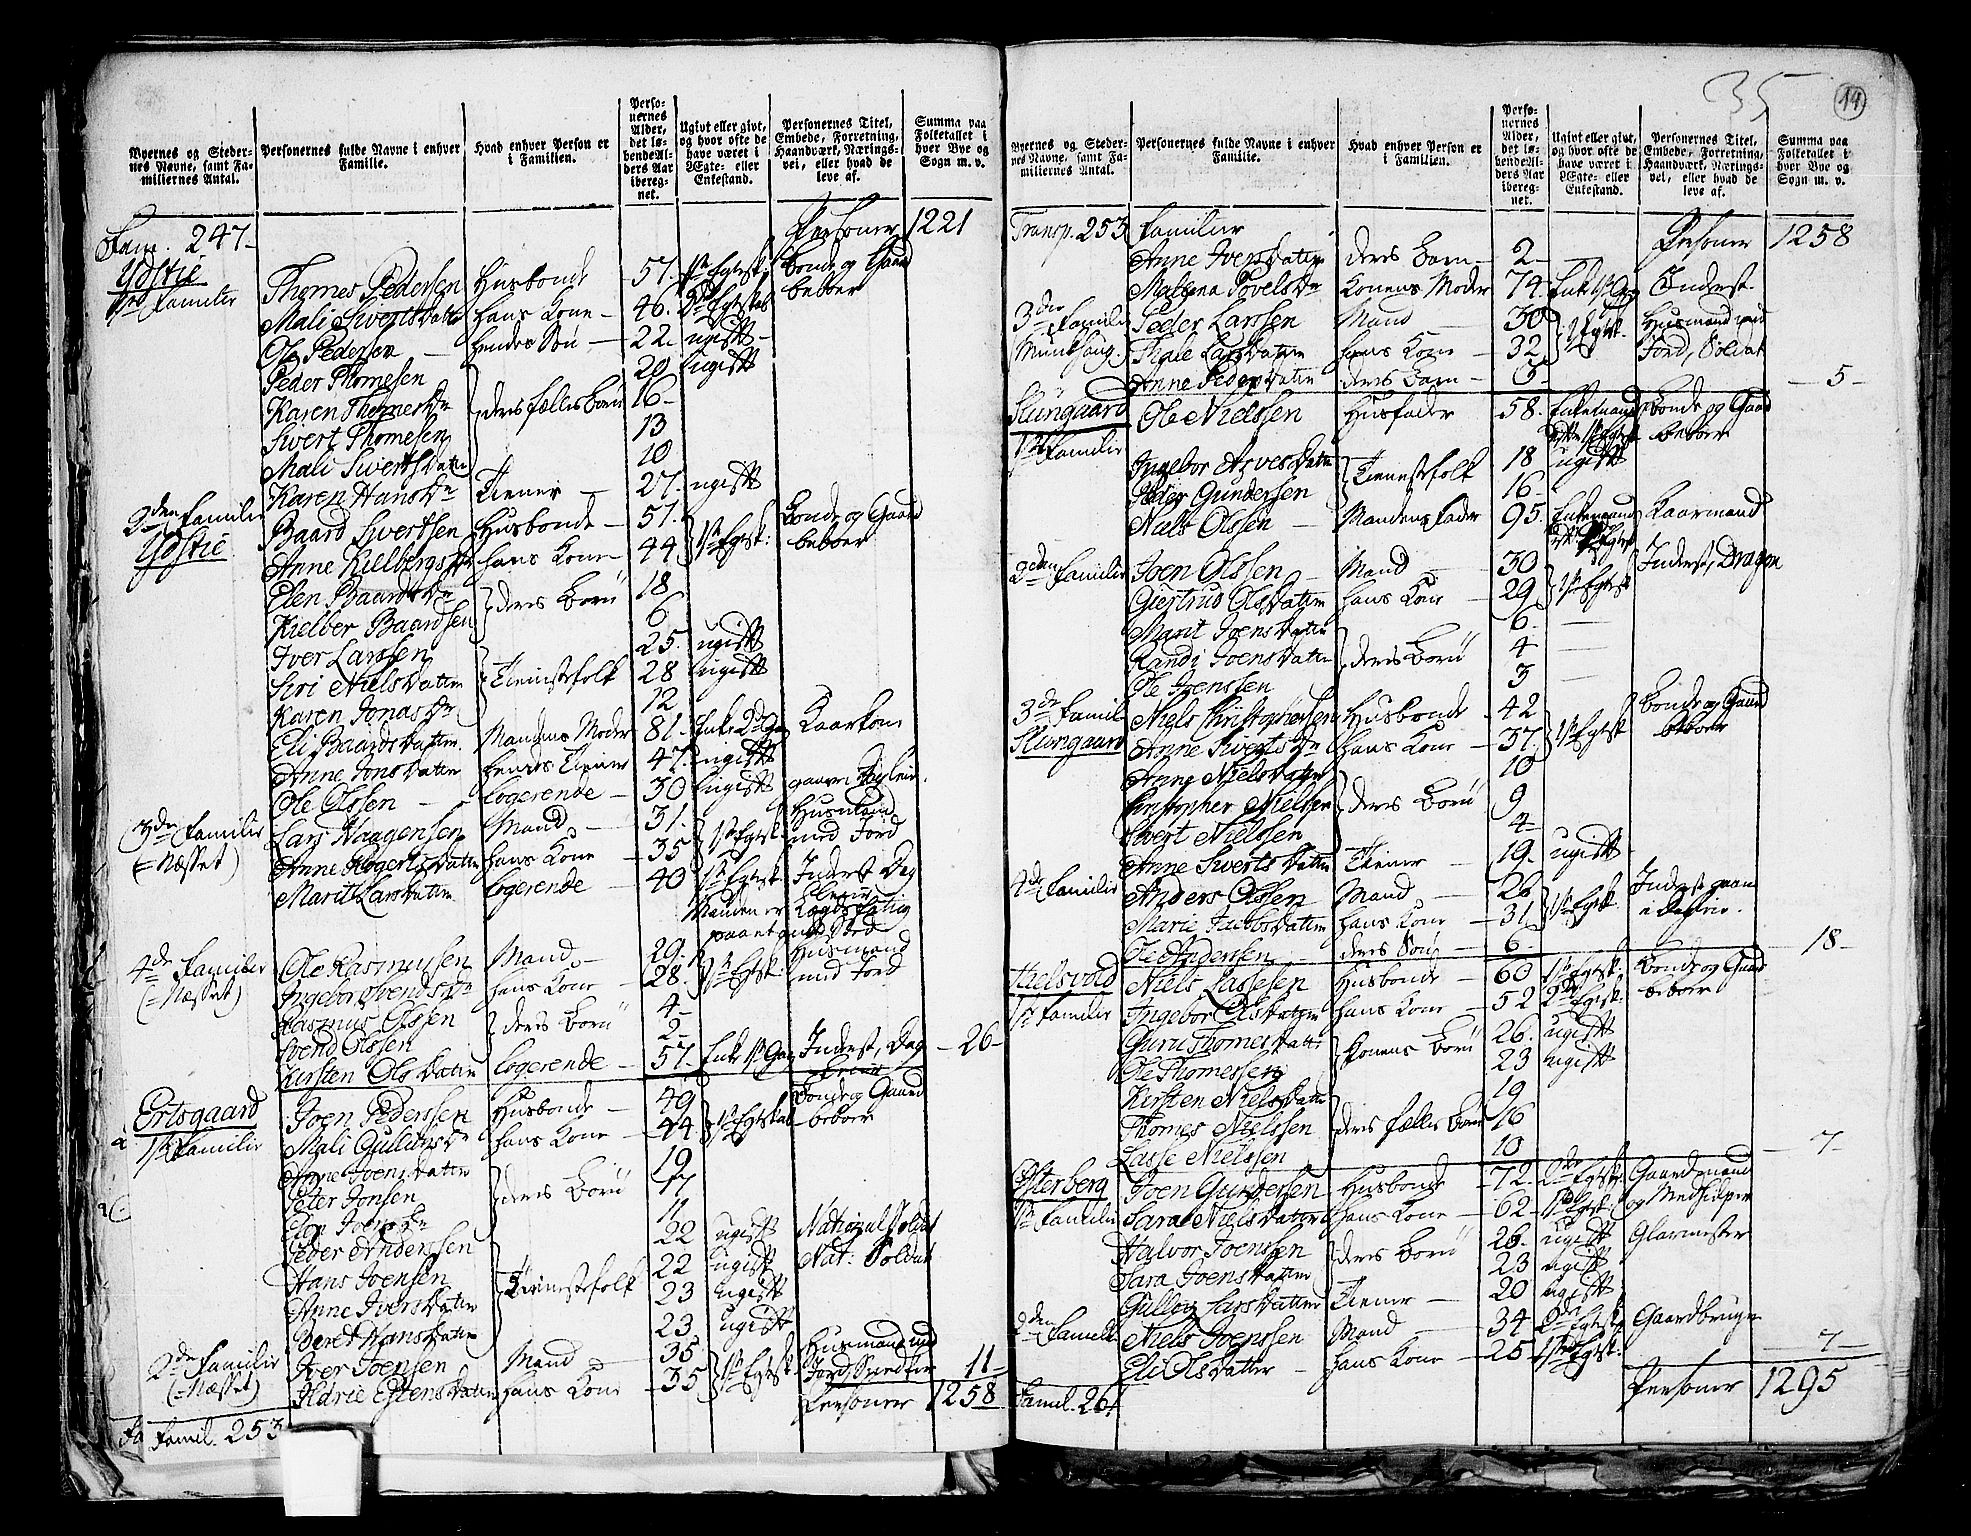 35
14
Byernes og Steder-
nes Navne, samt Fa-
miliernes Antal.
Personernes fulde Navne i enhver
Familie.
Hvad enhver Person er
i Familien.
Perso-
nernes
Alder,
det lø-
bende Al-
ders Aar
iberegnet.
Ugivt eller givt,
og hvor ofte de
have været i
Ægte- eller
Enkestand.
Personernes Titel,
Embede, Forretning,
Haandværk, Nærings-
vei, eller hvad de
leve af.
Summa paa
Folketallet i
hver Bye og
Sogn m. v.
Fam. 247 Personer 1221
Ydstie
1ste Familie Thomes Pedersen Husbonde 57 1ste Egtesk. Bonde og Gaard
beboer
Mali Siverts Datter hans Kone 46 2det Egteskab
Ole Pedersen hendes Søn 22 ugift
Peder Thomesen deres fælles Børn 20 ugift
Karen Thomesdr 16
Sivert Thomesen 13
Mali Siverts Datter 10
Karen Hansdr Tiener 27 ugift
2den Familie Baard Sivertsen Husbonde 51 1ste Egtesk: Bonde og Gaard
beboer
Ydstie Anne Kielbergsdr hans Kone 44
Elen Baardsdr deres Børn 18
Kielber Baardsen 6
Iver Larssen Tienistefolk 25 ugift
Siri Niels Datter 28 ugift
Karen Jonasdr 12
Eli Baards Datter Mandens Moder 81 Enke 2d Gg Kaarkone
Anne Jons Datter hendes Tiener 47 ugift
Ole Olssen Logerende 30 ugift gaaer i Dagleie
3de Familie Lars Haagensen Mand 31 1ste Egtesk Husmand
med Jord
(=Næsset) Anne Rogerts Datter hans Kone 35
Marit Lars Datter Logerende 40 1ste Egtesk Inderst Dag
Manden er
4de Familie Ole Rasmussen Mand 29 1ste Egtesk: Husmand
med Jord
(=Næsset) Ingebor Svendsdr hans Kone 28
Rasmus Olssen deres Børn 4
Svend Olssen 2
Kirsten Ols Datter Logerende 57 Enke 1ste Gg Inderst, Dag 26
Ertsgaard
1ste Familie Joen Pederssen Husbonde 49 1ste Egteskab Bonde og Gaard
beboer
Mali Gullachsdr hans Kone 44
Anne Joens Datter deres Børn 19
Peter Jonsen 17
Elen Joensdr 11
Peder Anderssen Tienistefolk 22 ugift National Soldat
Hans Joensen 22 ugift Nat: Soldat
Anne Ivers Datter 23 ugift
Beret Hans Datter 23 ugift
2de Familie Iver Joensen Mand 35 1ste Egtesk Husmand med
Jord, Smedker 11
(=Næsset) Hans Kone 35 Personer 1258
Famil. 253
Byernes og Steder-
nes Navne, samt Fa-
miliernes Antal.
Personernes fulde Navne i enhver
Familie.
Hvad enhver Person er
i Familien.
Perso-
nernes
Alder,
det lø-
bende Al-
ders Aar
iberegnet.
Ugivt eller givt,
og hvor ofte de
have været i
Ægte- eller
Enkestand.
Personernes Titel,
Embede, Forretning,
Haandværk, Nærings-
vei, eller hvad de
leve af.
Summa paa
Folketallet i
hver Bye og
Sogn m. v.
Transp. 253 Familier Personer 1258
Anne Ivers Datter deres Barn 2
Povelsdr Konens Moder 74 Enke 1ste Gg Inderst
3die Familie Peder Larssen Mand 30 1 Egtesk. Husmand med
Jord, Soldat
Munkhaug Thale Lars Datter hans Kone 32
Anne Peders Datter deres Barn 5
Slungaard Ole Nielssen Husfader 58 Enkemand Bonde og Gaard
beboer
1ste Familie Ingebor Datter Tienestefolk 18 ugift
Peder Gundersen 16
Niels Olssen Mandens Fader 95 Enkemand Kaarmand
2den Familie Joen Olssen Mand 30 1ste Egtesk Inderst, Dragon
Giertrud Ols Datter hans Kone 29
Marit Joens Datter deres Børn 6
Randi Joens Datter 4
Ole Joenssen 3
3de Famil Niels Christophersen Husbonde 42 1ste Egtesk Bonde og Gaard
beboer
Slungaard Anne Sivertsdr hans Kone 37
Anne Niels Datter deres Børn 10
Christopher Nielsen 9
Sivert Nielssen 4
Anne Siverts Datter Tiener 19 ugift
4de Familie Anders Olssen Mand 26 1ste Egtesk Inderst gaaer
i Dagleie.
Marie Jacobs Datter hans Kone 31
Ole Anderssen deres Søn 6 18
Kielsvold Niels Lassesen Husbonde 60 1ste Egtesk. Bonde og Gaard
beboer
1ste Familie Ingebor Ols Datter hans Kone 52 2det Egtesk.
Guru Thomes Datter Konens Børn 26 ugift
Ole Thomessen 23 ugift
Kirsten Niels Datter deres fælles Børn 19
Thomes Nielssen 16
Lasse Nielssen 10 7
Østerberg Joen Gundersen Husbonde 72 2det Egtesk Gaardmand
og Medhielper
1ste Familie Sara Niels Datter hans Kone 62 1ste Egtesk
Halvor Joenssen deres Børn 26 ugift Glarmester
Sara Joens Datter 23 ugift
Gulleg Lars Datter Tiener 20 ugift
2den Familie Niels Joenssen Mand 34 2det Egtesk Gaardbruger
Eli Ols Datter hans Kone 25 1ste Egtesk. 7
Famil. 261 Personer 1295